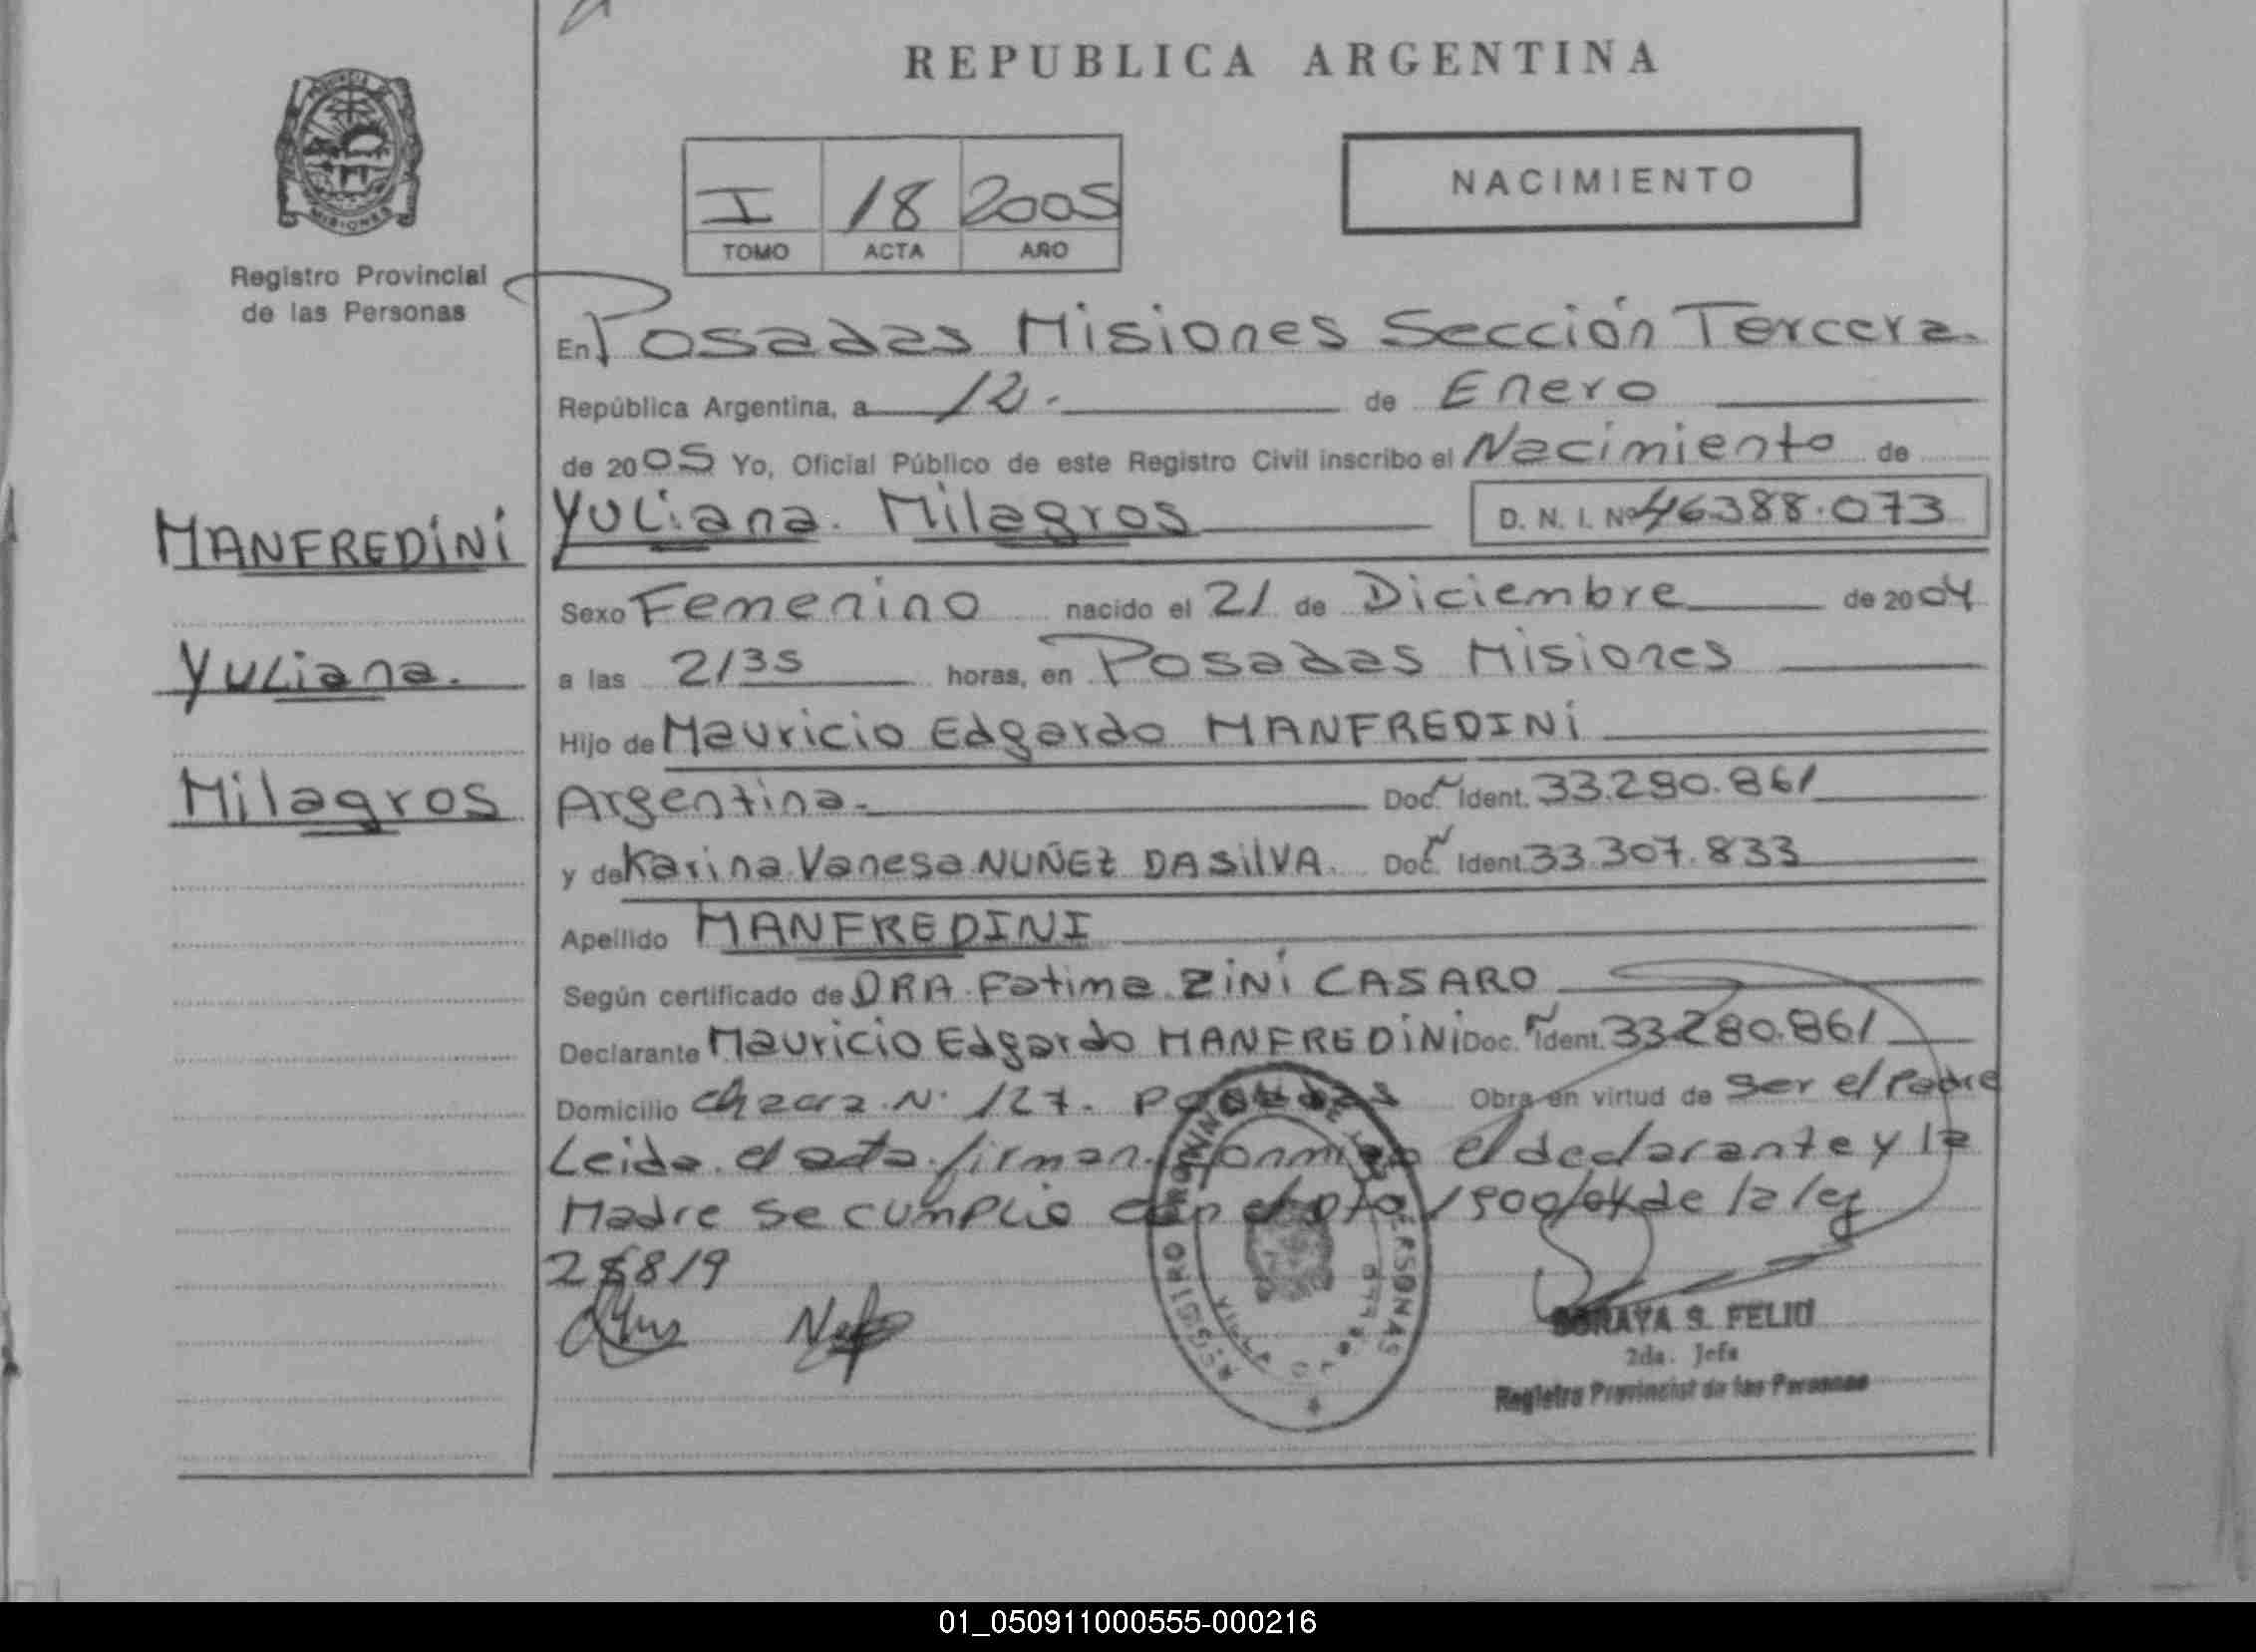 REPUBLICA ARGENTINA
I 18 2005
TOMO ACTA AÑO
NACIMIENTO
MISIONES
Registro Provincial
de las Personas
MANFREDiNi
Yuliana.
Milagros
En Posadas Misiones Sección Tercera.
República Argentina, a 12. de Enero
de 2005 Yo, Oficial Público de este Registro Civil inscribo el Nacimiento de
Yuliana. Milagros D. N. I. Nº 46388.073
Sexo Femenino nacido el 21 de Diciembre de 2004
a las 2135 horas, en Posadas Misiones
Hijo de Mauricio Edgardo MANFREDINi
Argentina. Doc. Ident. 33.280.861
y de Karina Vanesa NUÑEZ DASilVA. Doc. Ident. 33.307.833
Apellido MANFREDINI
Según certificado de DRA. Fatima ZiNi CASARO
Declarante Mauricio Edgardo MANFREDiNi Doc. Ident. 33280.861
Domicilio chacra N. 127. Posadas Obra en virtud de ser el Padre
Leida el acta firman conmigo el declarante y la
Madre se cumplio con el Dto 1500/04 de la ley
25819
SORAYA S. FELIU
2da. Jefa
Registro Provincial de las Personas
01_050911000555-000216